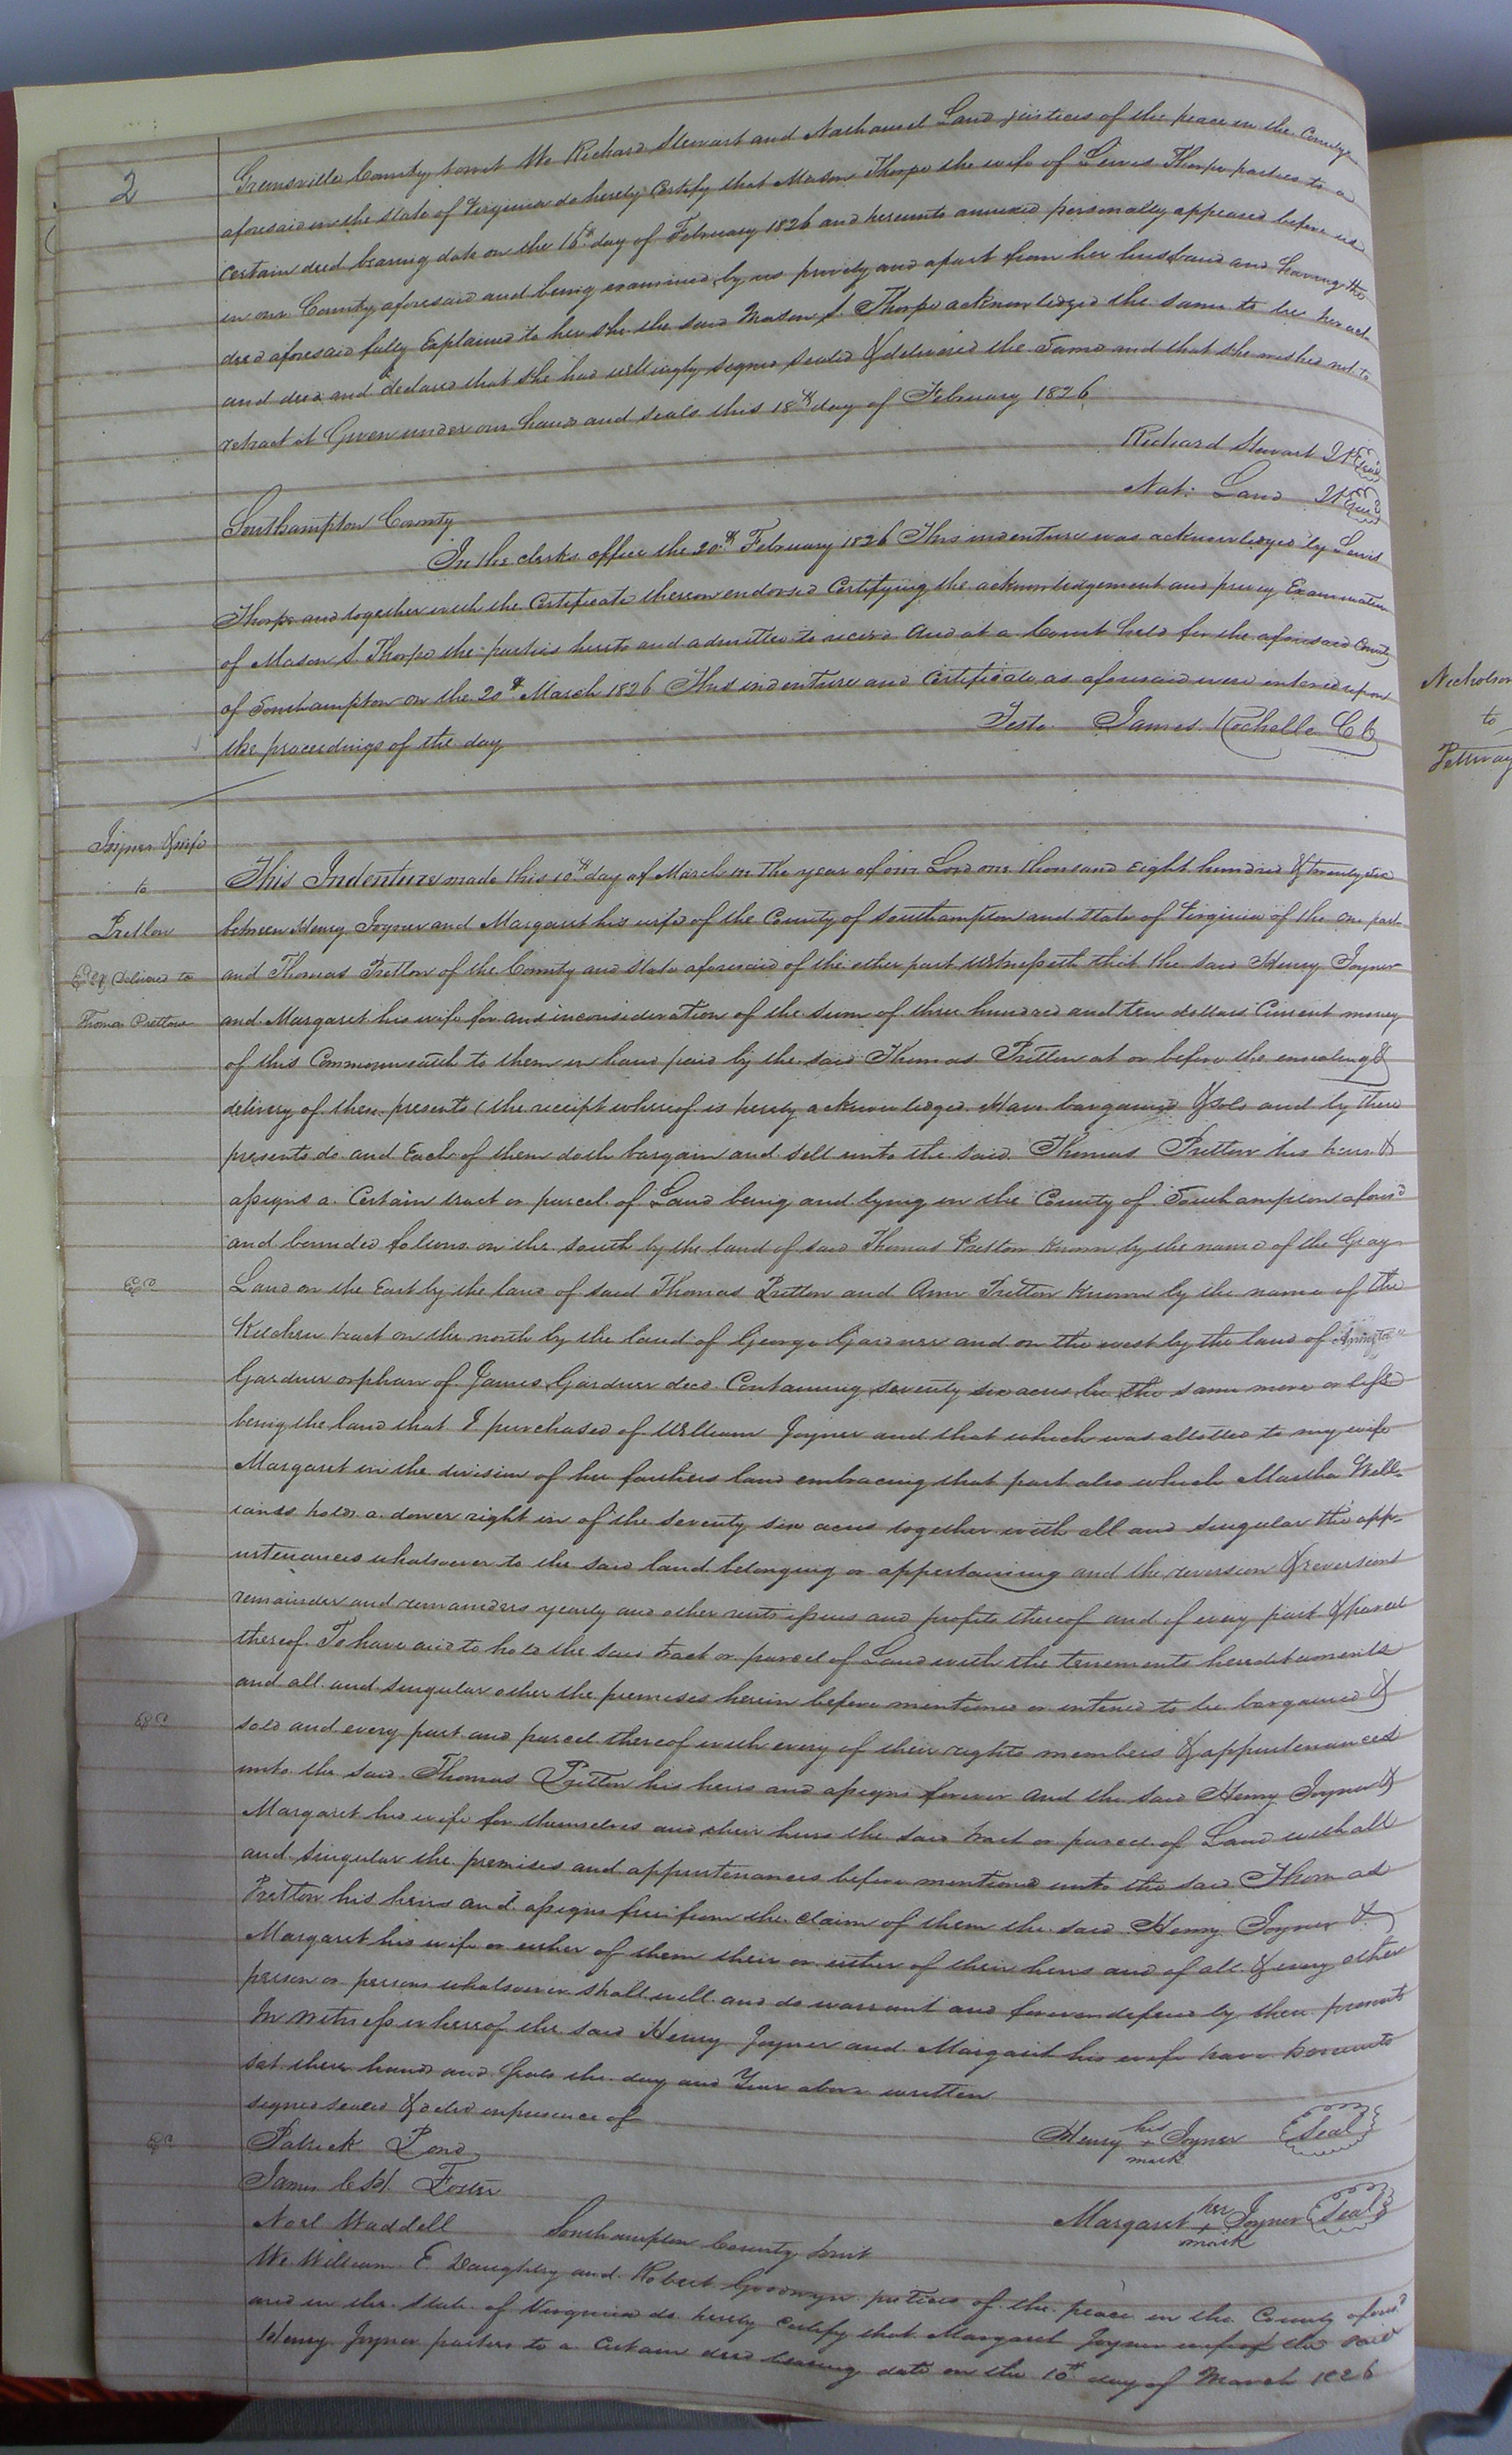 2
Greensville County towit We Richard Stewart and Nathaniel Land justices of the peace in the County
aforesaid in the state of Virginia do hereby certify that Mason Thorpe the wife of Lewis Thorpe parties to a
certain deed bearing date on the 16th day of February 1826 and hereunto annexed personally appeared before us
in our County aforesaid and being examined by us privily and apart from her husband and having the
deed aforesaid fully Explained to her she the said Mason S. Thorpe acknowledged the same to be her act
and deed and declared that she had willingly signed sealed & delivered the same and that she wished not to
retract it Given under our hands and seals this 18th day of February 1826
Richard Stewart JP Seal
Nat: Land JP Seal
Southampton County
In the clerks office the 20th February 1826 This indenture was acknowledged by Lewis
Thorpe and together with the Certificate thereon endorsed Certifying the acknowledgement and privy Examination
of Mason S. Thorpe the parties hereto and admitted to record And at a Court held for the aforesaid County
of Southampton on the 20th March 1826 This indenture and Certificate as aforesaid were entered upon
the proceedings of the day
Teste James Rochelle CC
Joyner & wife
to
Pretlow
Delivered to
Thomas Pretlow
This Indenture made this 10th day of March in the year of our Lord one thousand Eight hundred & twenty six
between Henry Joyner and Margaret his wife of the County of Southampton and State of Virginia of the one part
and Thomas Pretlow of the County and State aforesaid of the other part Witnesseth that the said Henry Joyner
and Margaret his wife for and in consideration of the sum of three hundred and ten dollars Current money
of this Commonwealth to them in hand paid by the said Thomas Pretlow at or before the ensealing &
delivery of these presents (the receipt whereof is hereby acknowledged Have bargained & sold and by these
presents do and Each of them doth bargain and sell unto the said Thomas Pretlow his heirs &
assigns a Certain tract or parcel of Land being and lying in the County of Southampton aforesd
and bounded follows on the south by the land of said Thomas Pretlow known by the name of the Gray
Land on the East by the land of said Thomas Pretlow and Ann Pretlow known by the name of the
Kitchen tract on the north by the land of George Gardner and on the west by the land of
Gardner orphan of James Gardner decd Containing seventy six acres be the same more or less
being the land that I purchased of William Joyner and that which was allotted to my wife
Margaret in the division of her fauthers land embracing that part also which Martha Will-
iams holds a dower right in of the seventy six acres together with all and singular the app-
urtenances whatsoever to the said land belonging or appertaining and the reversion & reversions
remainder and remainders yearly and other rents issues and profits thereof and of every part & parcel
thereof. To have and to hold the said tract or parcel of Land with the tenements hereditaments
and all and singular other the premises herein before mentioned or intened to be bargained &
sold and every part and parcel thereof with every of their rights members & appurtenances
unto the said Thomas Pretlow his heirs and assigns forever and the said Henry Joyner &
Margaret his wife for themselves and their heirs the said tract or parcel of Land with all
and singular the premises and appurtenances before mentioned unto the said Thomas
Pretlow his heirs and assigns free from the claim of them the said Henry Joyner &
Margaret his wife or either of them their or either of their heirs and of all & every other
person or persons whatsoever shall will and do warrant and forever defend by these presents
In witness whereof the said Henry Joyner and Margaret his wife have hereunto
set there hands and Seals the day and Year above written
signed sealed & deld in presence of
Patrick Pond
James C H. Foster
Noel Waddell
Henry his + mark Joyner Seal
Margaret her + mark Joyner Seal
Southampton County towit
We William E Daughtry and Robert Goodwyn justices of the peace in the County aforsd
and in the State of Virginia do hereby certify that Margaret Joyner wife of the said
Henry Joyner parties to a Certain deed bearing date on the 10th day of March 1826
Nicholson
to